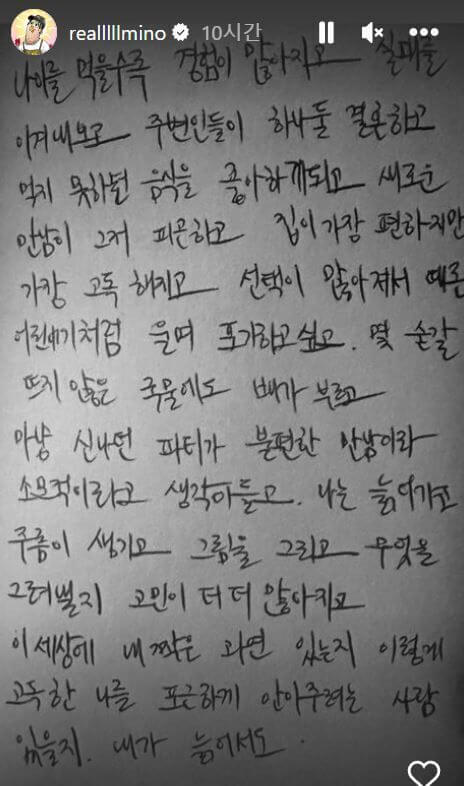 realllllmino 10시간
나이를 먹을수록 경험이 많아지고 실패를
이겨내보고 주변인들이 하나둘 결혼하고
먹지 못하던 음식을 좋아하게되고 새로운
만남이 그저 피곤하고 집이 가장 편하지만
가장 고독 해지고 선택이 많아져서 때론
어린애기처럼 울며 포기하고싶고. 몇 숟갈
뜨지 않은 국물에도 배가 부르고
마냥 신나던 파티가 불편한 만남이라
소모적이라고 생각이들고. 나는 늙어가고
주름이 생기고 그림을 그리고 무엇을
그려낼지 고민이 더 더 많아지고
이 세상에 내 짝은 과연 있는지 이렇게
고독한 나를 포근하게 안아주려는 사람
있을지. 내가 늙어서도.